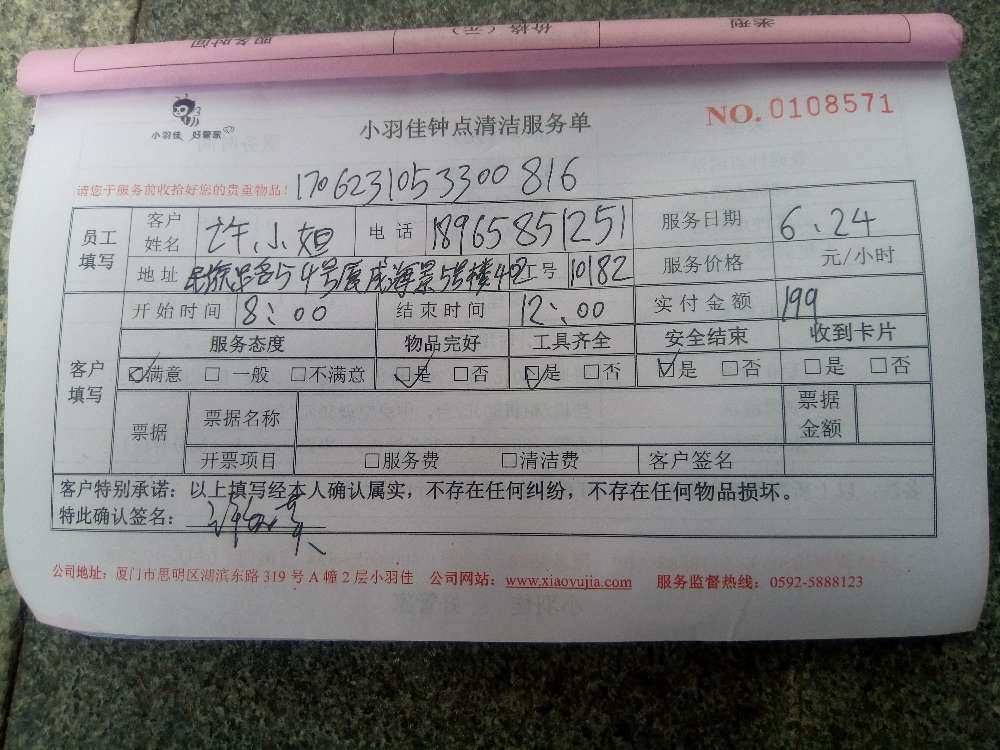 服务时间 价格（元） 类型
小羽佳 好管家
小羽佳钟点清洁服务单
NO.0108571
请您于服务前收拾好您的贵重物品！ 1706231053300816
员工填写 客户姓名 许小姐 电话 18965851251 服务日期 6.24
地址 号厦成海景5号楼402 工号 10182 服务价格 元/小时
客户填写 开始时间 8:00 结束时间 12:00 实付金额 199
服务态度 物品完好 工具齐全 安全结束 收到卡片
☑满意 □一般 □不满意 ☑是 □否 ☑是 □否 ☑是 □否 □是 □否
票据 票据名称 票据金额
开票项目 □服务费 □清洁费 客户签名
客户特别承诺：以上填写经本人确认属实，不存在任何纠纷，不存在任何物品损坏。
特此确认签名：
公司地址：厦门市思明区湖滨东路 319 号 A 幢 2 层小羽佳 公司网站：www.xiaoyujia.com 服务监督热线：0592-5888123